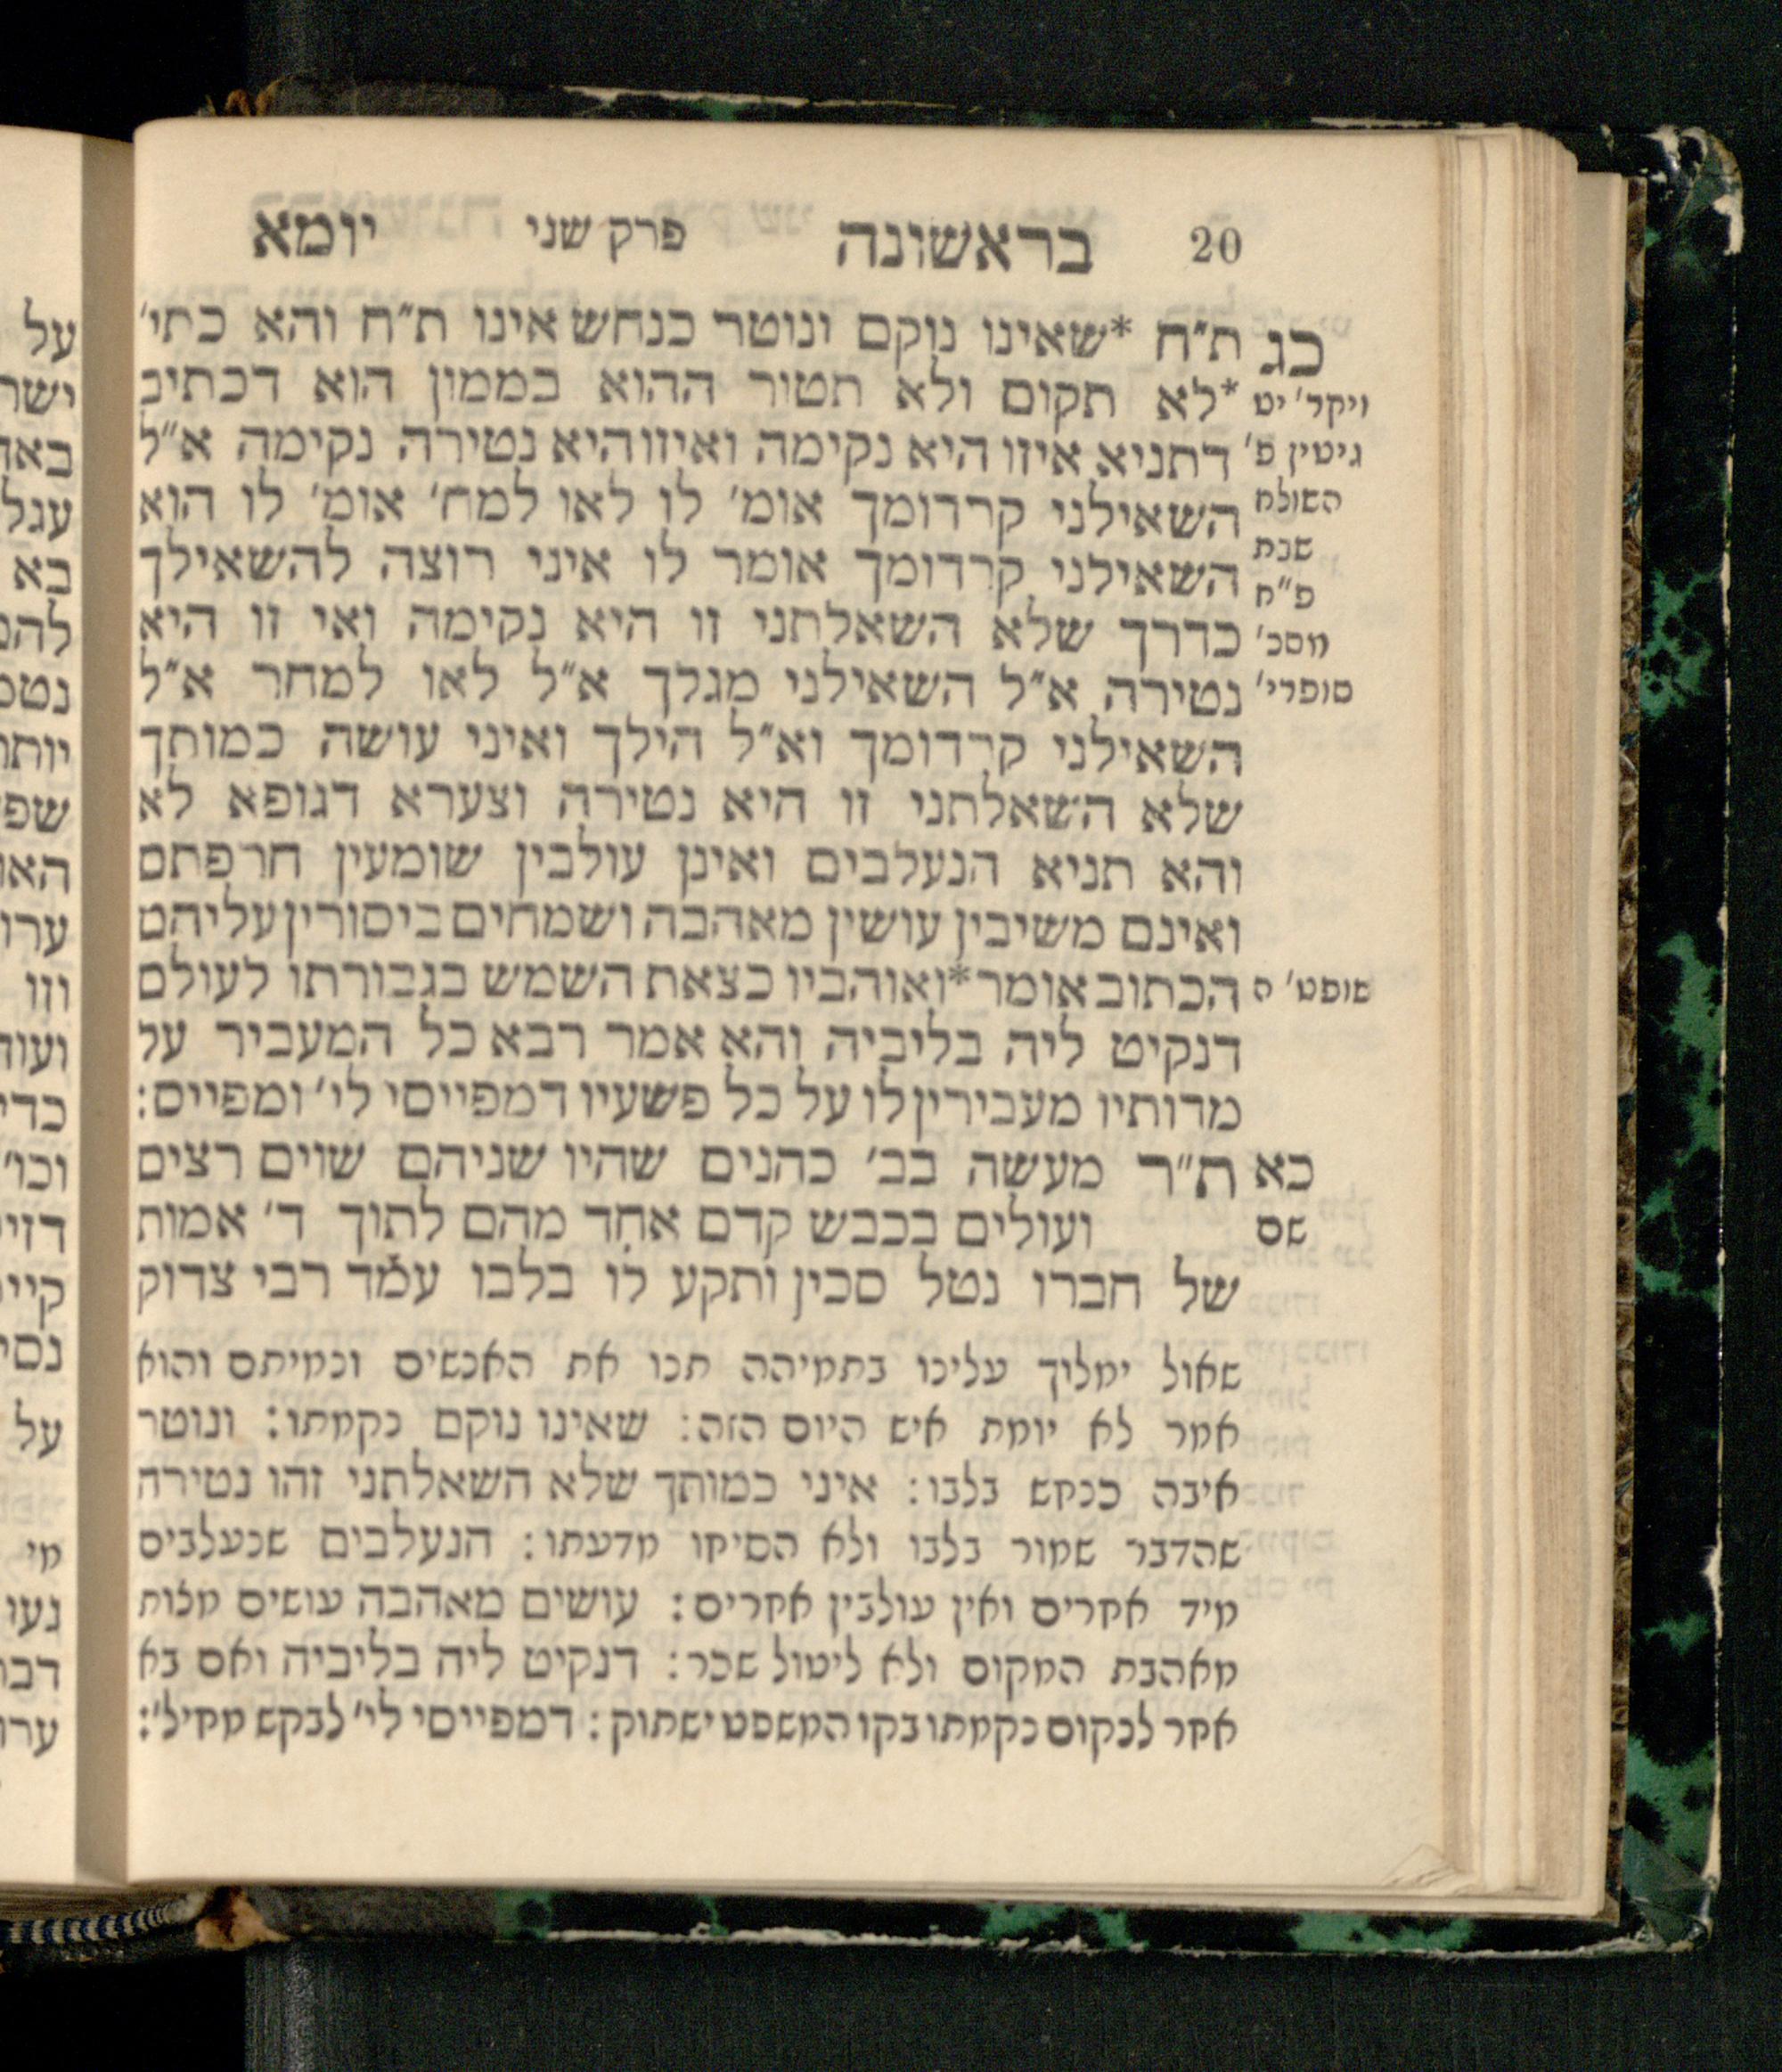 20 בראשונה פרק שני יומא
כג ת״ח *שאינו נוקם ונוטר כנחש אינו ת״ח והא כתי׳
ויקר׳ יט *לא תקום ולא תטור ההוא בממון הוא דכתיב
גיטין פ׳ דתניא איזו היא נקימה ואיזו היא נטירה נקימה א״ל
השולח השאילני קרדומך אומ׳ לו לאו למח׳ אומ׳ לו הוא
שבת
פ״ח השאילני קרדומך אומר לו איני רוצה להשאילך
מסכ׳ כדרך שלא השאלתני זו היא נקימה ואי זו היא
סופרי׳ נטירה א״ל השאילני מגלך א״ל לאו למחר א״ל
השאילני קרדומך וא״ל הילך ואיני עושה כמותך
שלא השאלתני זו היא נטירה וצערא דגופא לא
והא תניא הנעלבים ואינן עולבין שומעין חרפתם
ואינם משיבין עושין מאהבה ושמחים ביסורין עליהם
שופט׳ ה הכתוב אומר *ואוהביו כצאת השמש בגבורתו לעולם
דנקיט ליה בליביה והא אמר רבא כל המעביר על
מדותיו מעבירין לו על כל פשעיו דמפייסי לי׳ ומפייס:
כא ת״ר מעשה בב׳ כהנים שהיו שניהם שוים רצים
שם ועולים בכבש קדם אחד מהם לתוך ד׳ אמות
של חברו נטל סכין ותקע לו בלבו עמד רבי צדוק
שאול ימלוך עלינו בתמיהה תנו את האנשים ונמיתם והוא
אמר לא יומת איש היום הזה: שאינו נוקם נקמתו: ונוטר
איבה כנחש בלבו: איני כמותך שלא השאלתני זהו נטירה
שהדבר שמור בלבו ולא הסיחו מדעתו: הנעלבים שנעלבים
מיד אחרים ואין עולבין אחרים: עושים מאהבה עושים מצות
מאהבת המקום ולא ליטול שכר: דנקיט ליה בליביה ואם בא
אחר לנקום נקמתו בקו המשפט ישתוק: דמפייסי לי׳ לבקש מחיל׳: